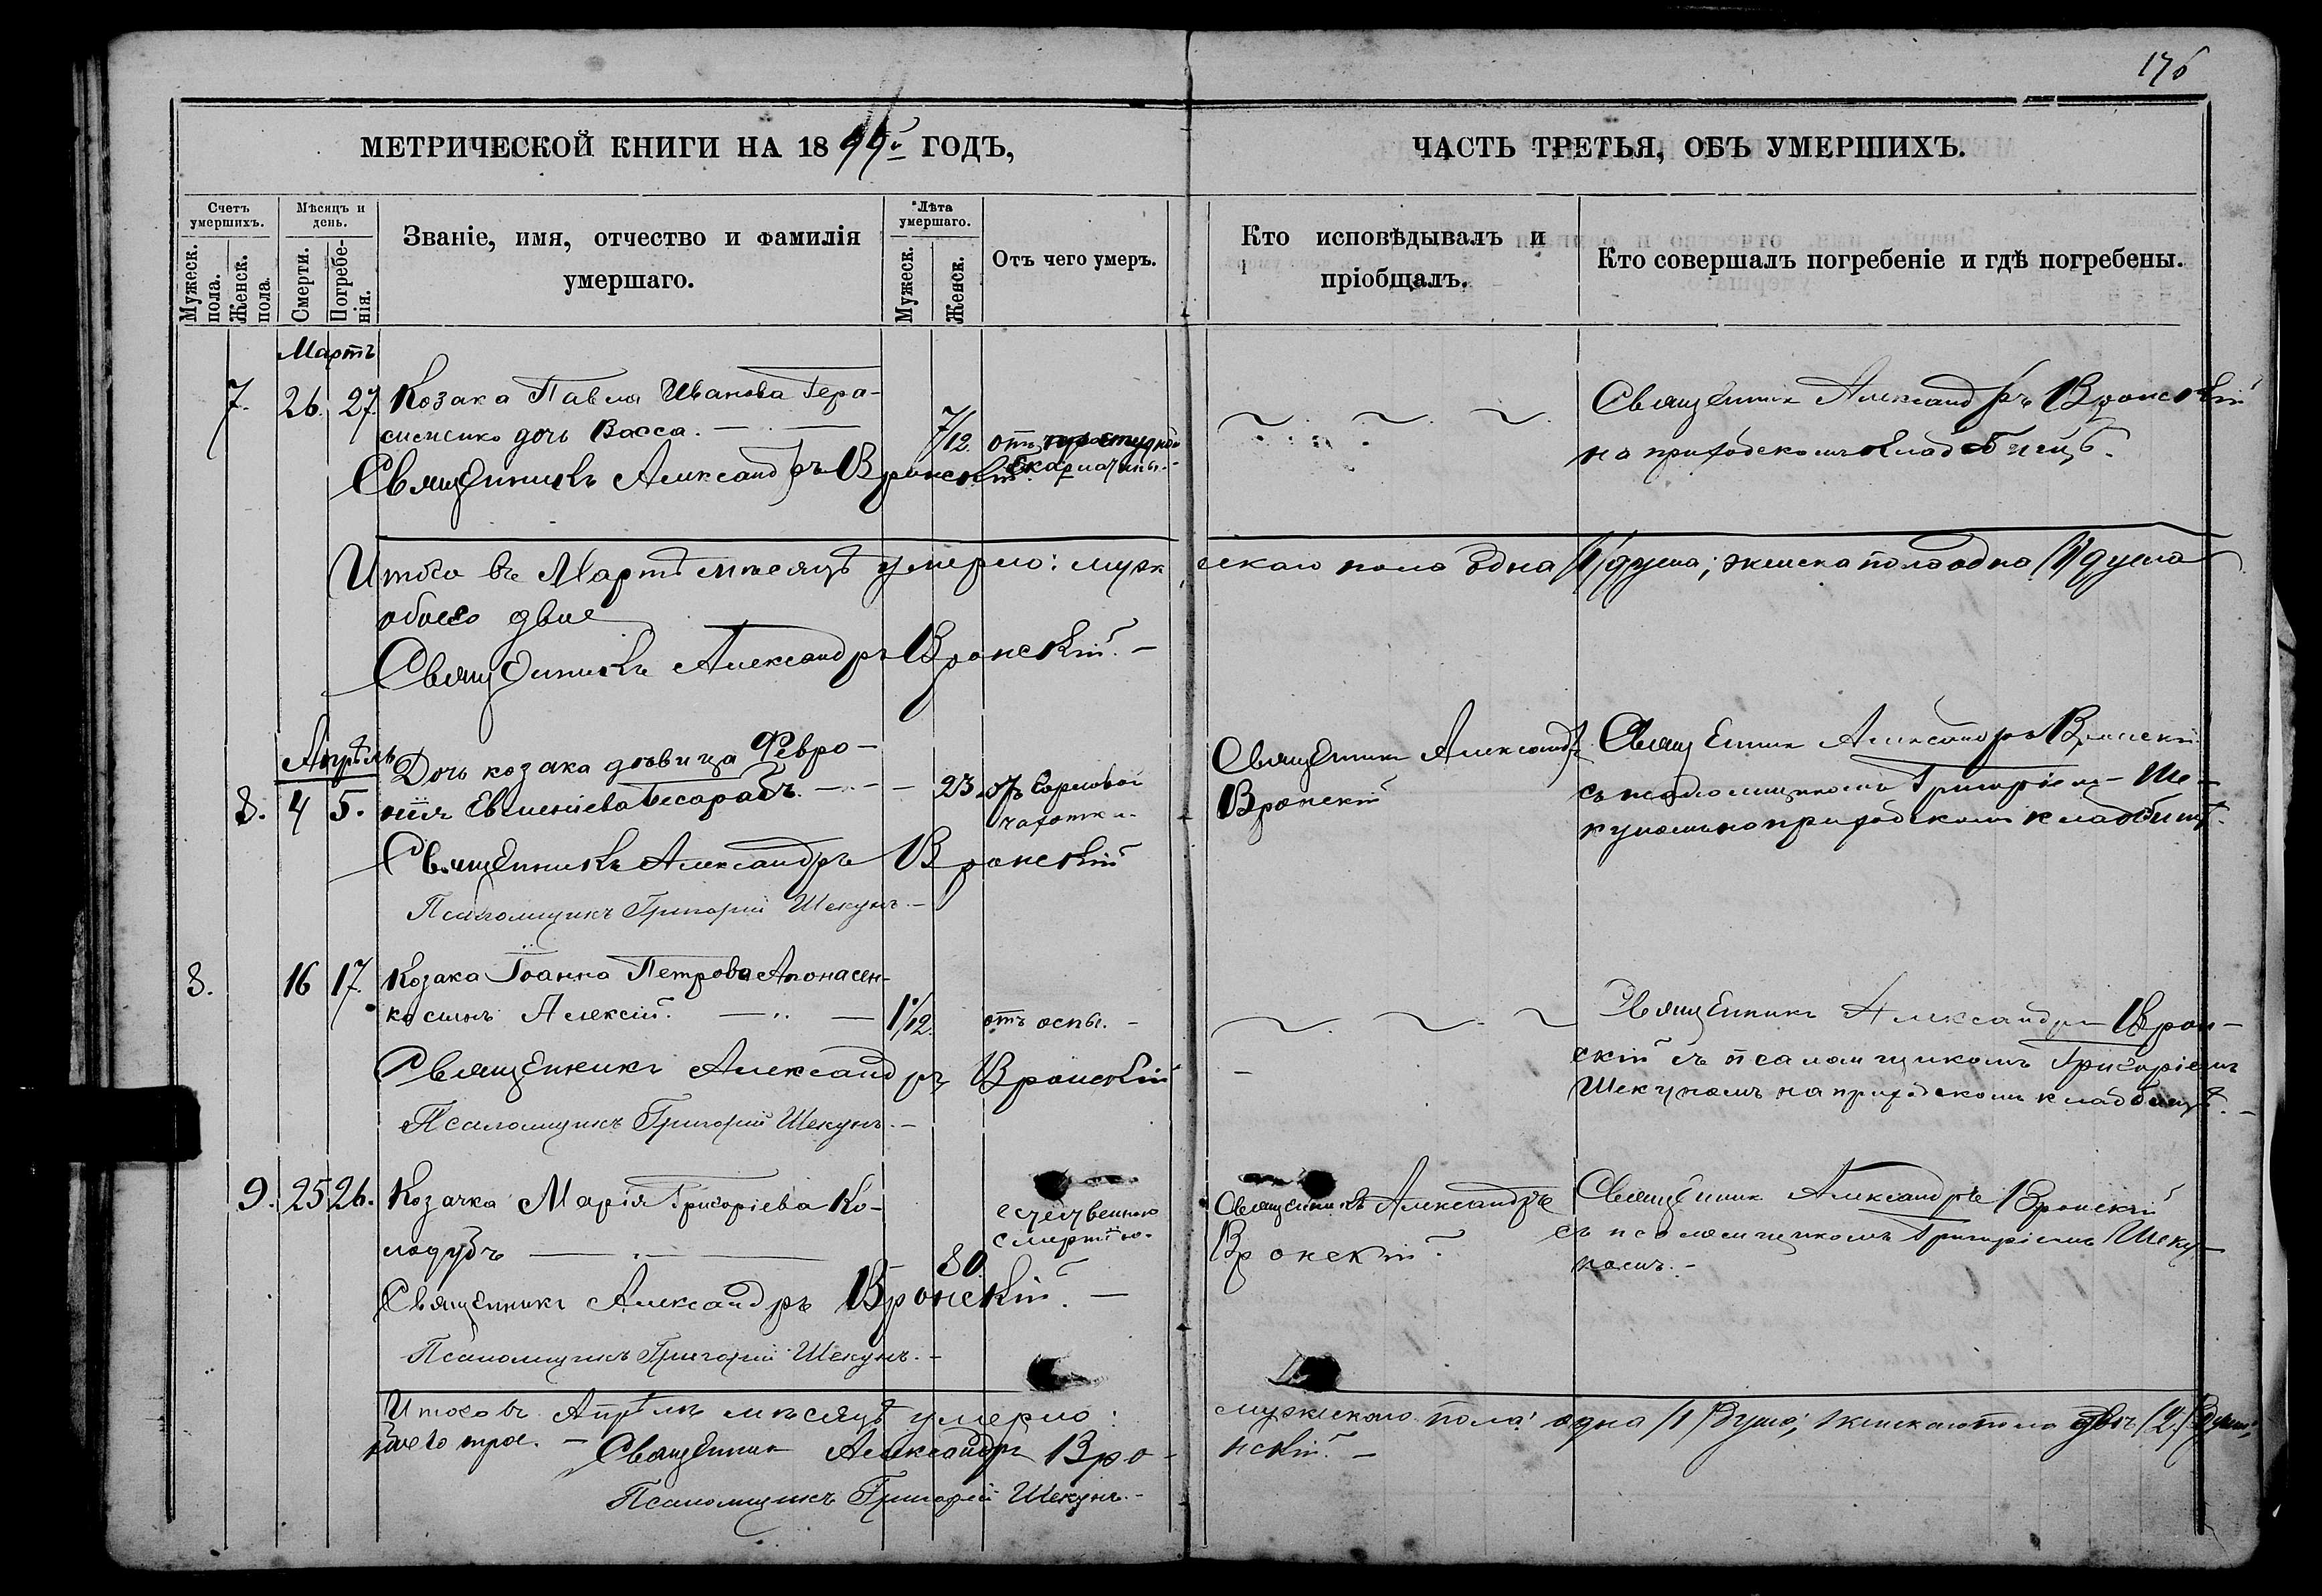 176
МЕТРИЧЕСКОЙ КНИГИ НА 1899й ГОДЪ,
ЧАСТЬ ТРЕТЬЯ, ОБЪ УМЕРШИХЪ.
Счетъ умершихъ.
Мужеск. пола.
Женск. пола.
Мѣсяцъ и день.
Смерти.
Погребенія.
Званіе, имя, отчество и фамилія
умершаго.
Лѣта умершаго.
Мужеск.
Женск.
Отъ чего умеръ.
Кто исповѣдывалъ и
пріобщалъ.
Кто совершалъ погребеніе и гдѣ погребены.
Мартъ
7. 26. 27. Козака Павла Иванова Гера-
сименко дочь Васса.
7/12. отъ
скарлатины.
Священникъ Александръ Вронскій.
Священник Александръ Вронскій
на приходскомъ кладбищѣ.
Итого въ Мартѣ мѣсяцѣ умерло: мужескаго пола одна /1/ душа; женска пола одна /1/ душа
обоего двое
Священникъ Александръ Вронскій.
Апрѣль
8. 4 5. Дочь козака дѣвица Февро-
нія Евменіева Бесарабъ.
23. отъ горловой
чахотки.
Священникъ Александръ
Вронскій
Священник Александръ Вронскій
съ псаломщикомъ Григоріем Ше-
куномъ на приходскомъ кладбищѣ.
Священникъ Александръ Вронскій
Псаломщикъ Григорій Шекунъ.
8. 16 17. Козака Іоанна Петрова Апонасен-
ко сынъ Алексій.
1/12. отъ оспы.
Священникъ Александръ Врон-
скій съ псаломщикомъ Григоріемъ
Шекуномъ на приходскомъ кладбищѣ.
Священникъ Александръ Вронскій
Псаломщикъ Григорій Шекунъ.
9. 25 26. Козачка Марія Григоріева Ко-
лодубъ
80.
естественною
смертію.
Священникъ Александръ
Вронскій.
Священник Александръ Вронскій
съ псаломщикомъ Григоріемъ Шеку-
номъ.
Священникъ Александръ Вронскій.
Псаломщикъ Григорій Шекунъ.
Итого въ Апрѣлѣ мѣсяцѣ умерло: мужескаго пола одна /1/ душа; женскаго пола двѣ /2/ души,
обоего трое. Священник Александръ Вронскій.
Псаломщикъ Григорій Шекунъ.